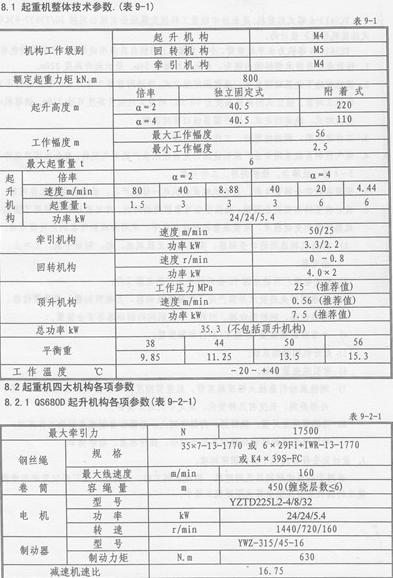 8.1 起重机整体技术参数.(表9-1)
表9-1
机构工作级别 起升机构 M4
回转机构 M5
牵引机构 M4
额定起重力矩 kN.m 800
起升高度 m 倍率 独立固定式 附着式
α=2 40.5 220
α=4 40.5 110
工作幅度 m 最大工作幅度 56
最小工作幅度 2.5
最大起重量 t 6
起升机构 倍率 α=2 α=4
速度 m/min 80 40 8.88 40 20 4.44
起重量 t 1.5 3 3 3 6 6
功率 kW 24/24/5.4
牵引机构 速度 m/min 50/25
功率 kW 3.3/2.2
回转机构 速度 r/min 0 ~0.8
功率 kW 4.0×2
顶升机构 工作压力 MPa 25 (推荐值)
速度 m/min 0.56 (推荐值)
功率 kW 7.5 (推荐值)
总功率 kW 35.3 (不包括顶升机构)
平衡重 38 44 50 56
9.85 11.25 13.5 15.3
工作温度 ℃ -20~+40
8.2 起重机四大机构各项参数
8.2.1 QS680D 起升机构各项参数(表 9-2-1)
表9-2-1
最大牵引力 N 17500
钢丝绳 规格 35×7-13-1770 或 6×29Fi+IWR-13-1770
或K4×39S-FC
最大线速度 m/min 160
卷筒 容绳量 m 450(缠绕层数≤6)
电机 型号 YZTD225L2-4/8/32
功率 kW 24/24/5.4
转速 r/min 1440/720/160
制动器 型号 YWZ-315/45-16
制动力矩 N.m 630
减速机速比 16.75